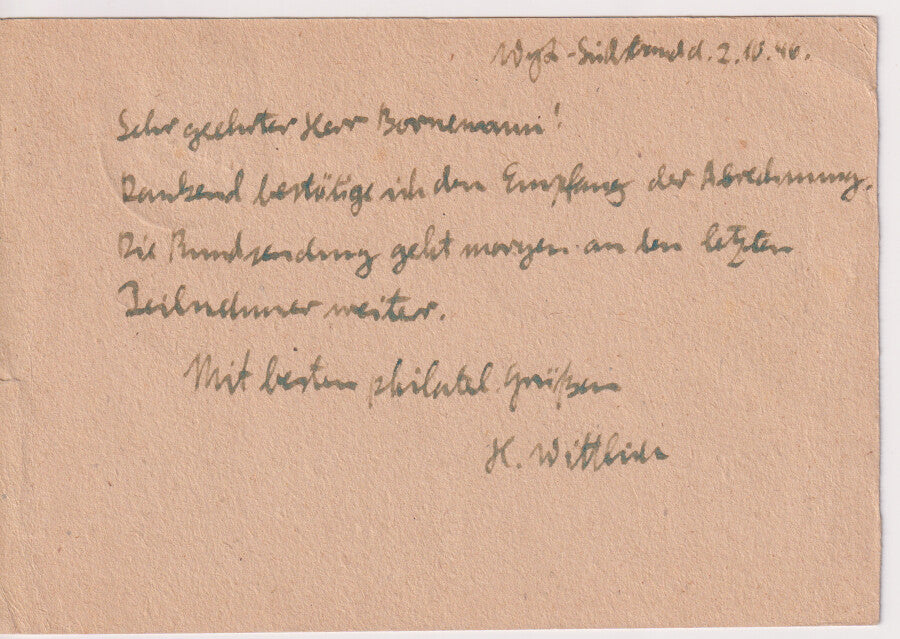 Wyk-Südstrand d. 2.10.46.
Sehr geehrter Herr Bornemann!
Dankend bestätige ich den Empfang der Abrechnung.
Die Rundsendung geht morgen an den letzten
Teilnehmer weiter.
Mit besten philatel. Grüßen
H.